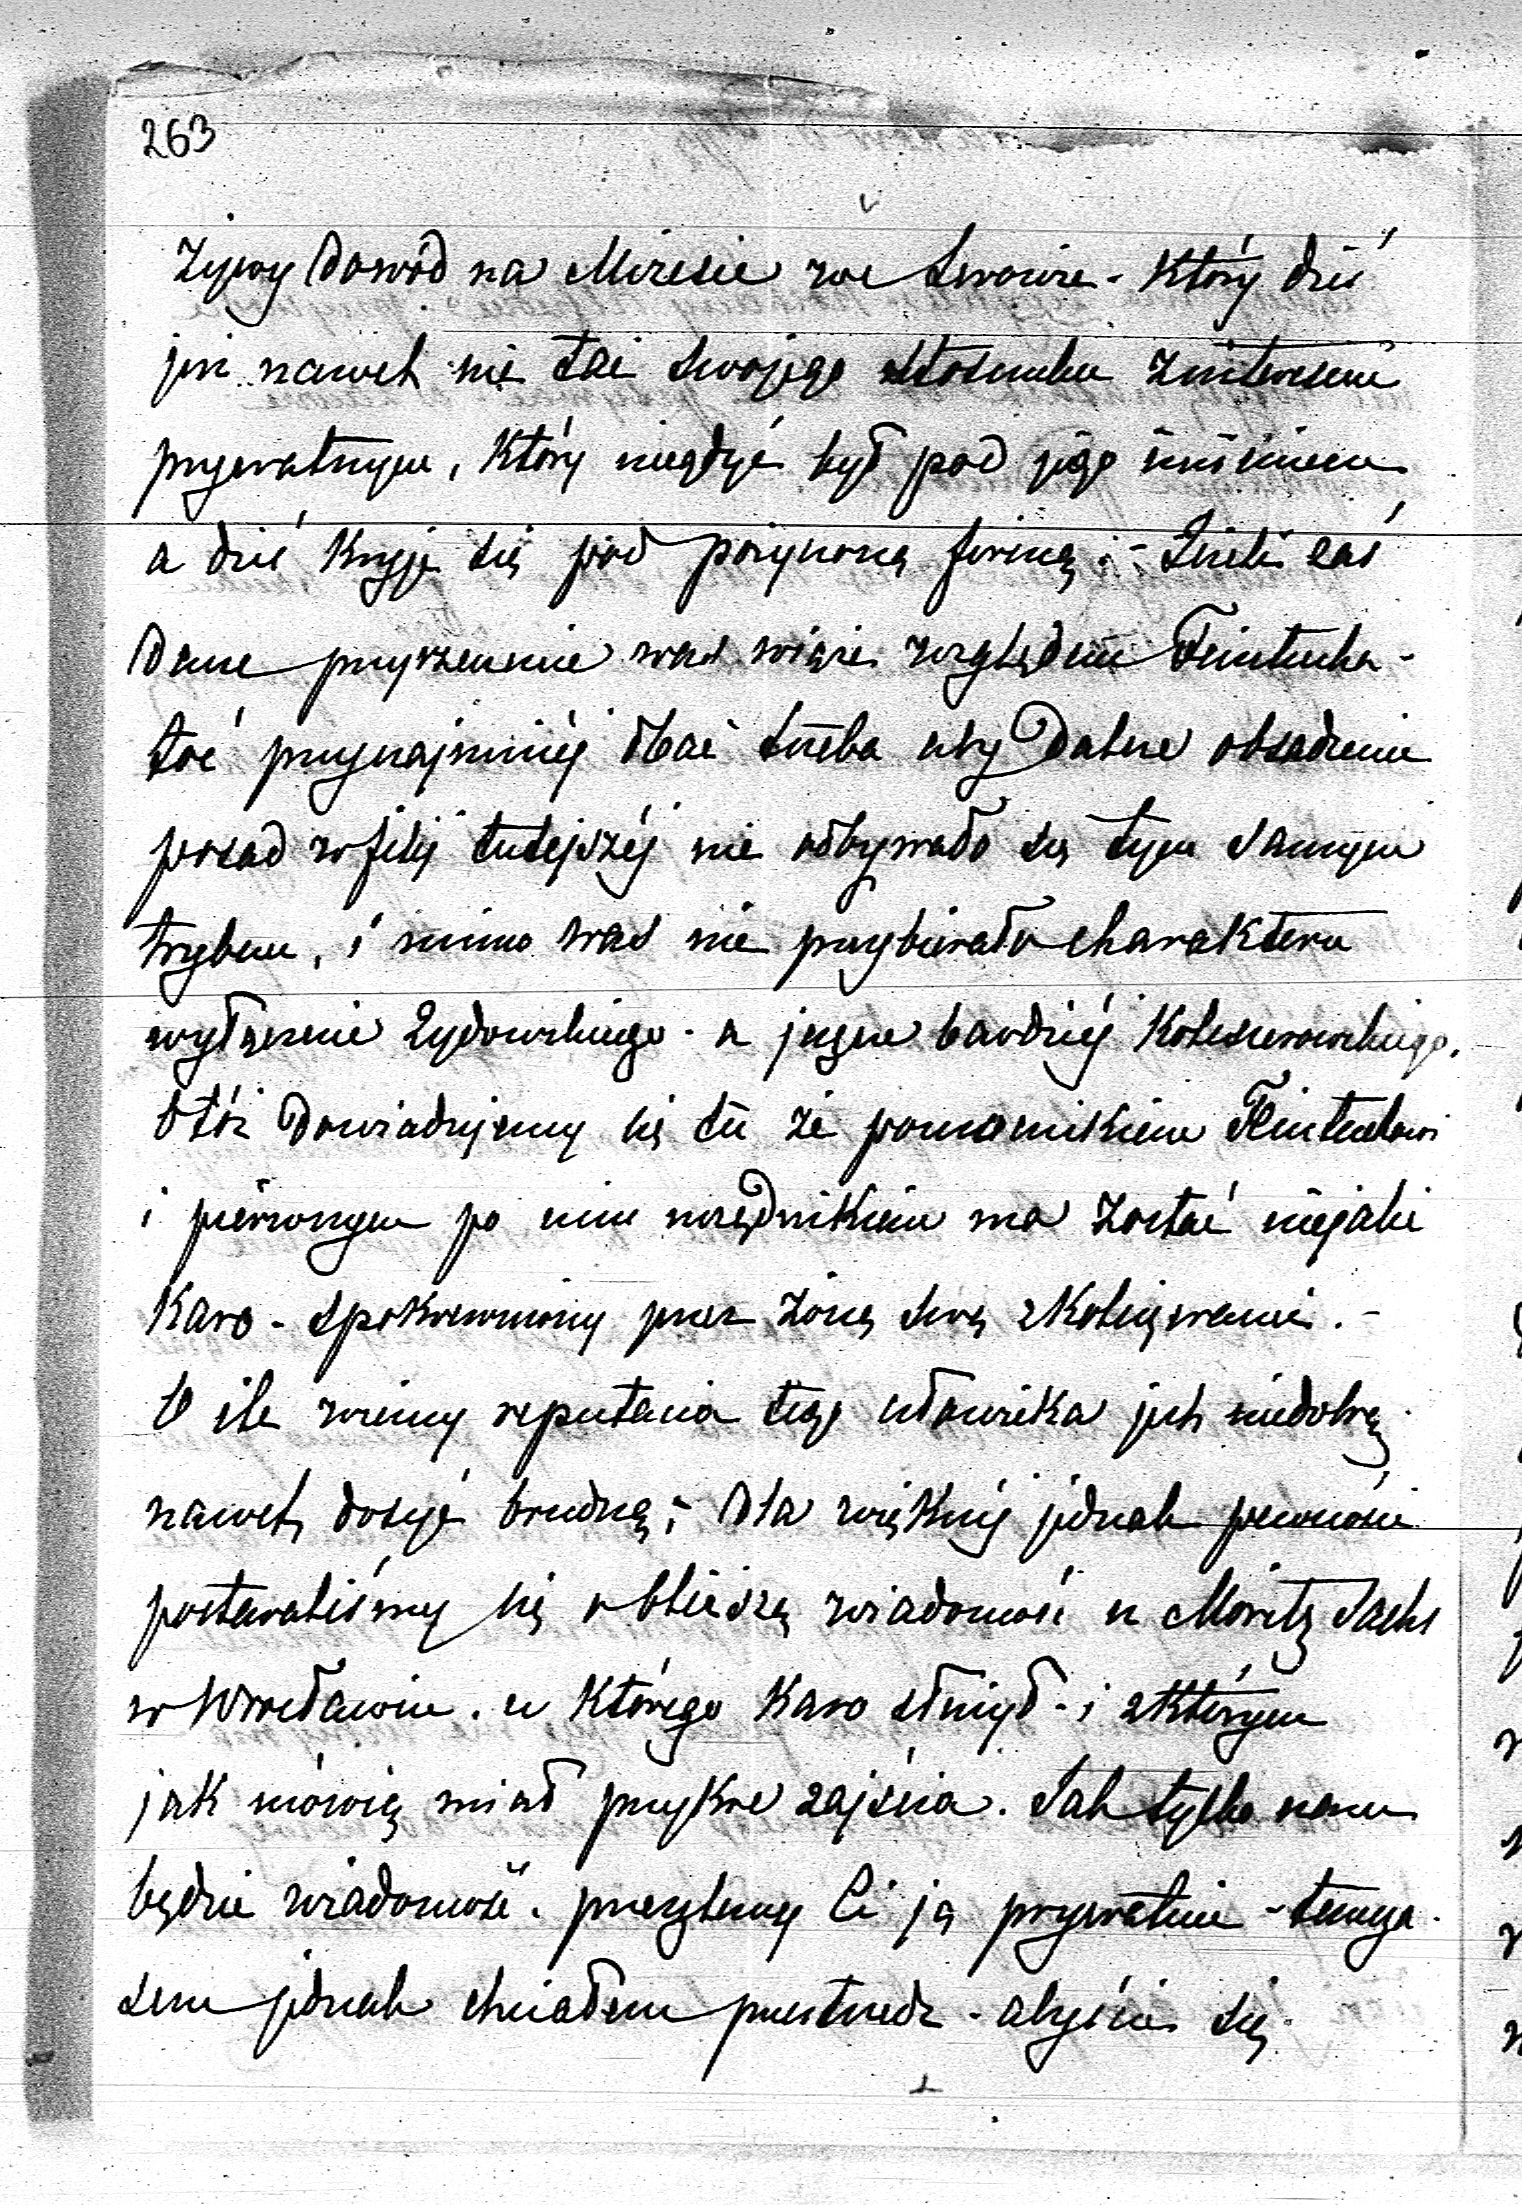 263
żywy dowód na Mizesie we Lwowie - który dziś
już nawet nie tai swojego stosunku z interesem
prywatnym, który niegdyś był pod jego imieniem
a dziś kryje się pod pożyczoną firmą; - Jeżeli zaś
dane przyrzeczenie was wiąże względem Feintucha -
toć przynajmniéj dbać trzeba aby dalsze obsadzenie
posad w filij tutejszéj nie odbywało się tym samym
trybem, i mimo was nie przybierało charakteru
wyłącznie żydowskiego - a jeszcze bardziéj Koliszerowskiego.
Otóż dowiadujemy się tu że pomocnikiem Feintuchowi
i pierwszym po nim urzędnikiem ma zostać niejaki
Karo - spokrewniony przez żonę swą z Kolischerami. -
O ile wiemy reputacia tego człowieka jest niedobrą
nawet dosyć brudną; dla większéj jednak pewności
postaraliśmy się o bliższą wiadomość u Moritz Sachs
w Wrocławiu. u którego Karo służył - i z którym
jak mówią miał przykre zajścia. Jak tylko nam
będzie wiadomość. prześlemy Ci ją prywatnie - tymcza
sem jednak chciałem przestrzedz - abyście się